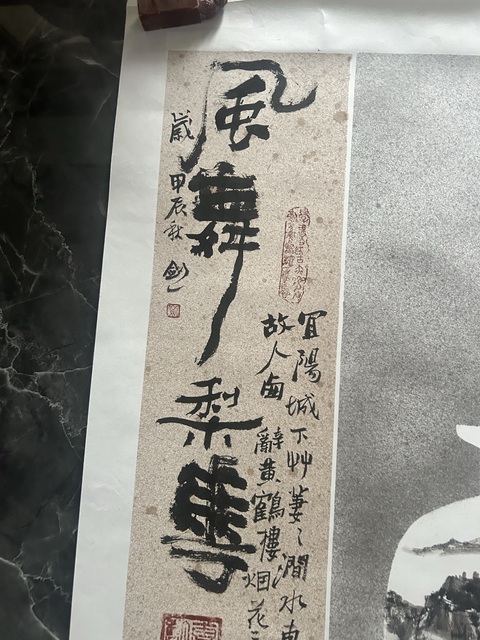 風舞梨華
歲甲辰秋劍一
宜陽城下艸萋萋澗水東
故人西辭黃鶴樓烟花三